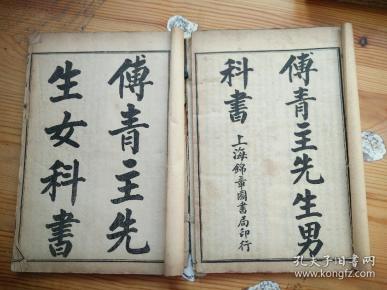 傅青主先生男
科書
上海錦章圖書局印行
傅青主先
生女科書
孔夫子旧书网
www.kongfz.com